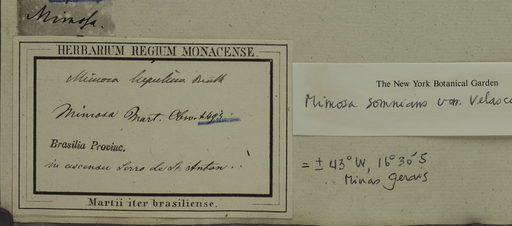 Mimosa.
HERBARIUM REGIUM MONACENSE.
Mimosa lupulina Benth
Mimosa Mart. Obs.
Brasilia Provinc.
in ascensu Serro de St. Anton.
Martii iter brasiliense.
The New York Botanical Garden
Mimosa somnians var. Velasc
= ± 43° W, 16° 30' S
Minas Gerais